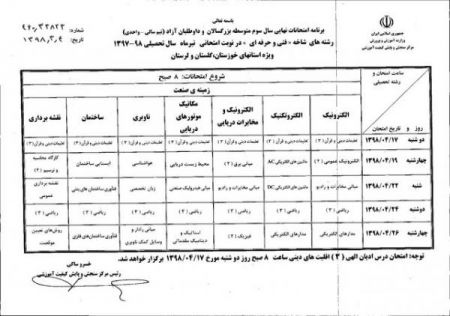 باسمه تعالی
جمهوری اسلامی ایران
وزارت آموزش و پرورش
مرکز سنجش و پایش کیفیت آموزشی
شماره:
۱۳۹۸
برنامه امتحانات نهایی سال سوم متوسطه بزرگسالان و داوطلبان آزاد (نیم سالی - واحدی)
رشته های شاخه «فنی و حرفه ای» در نوبت امتحانی تیرماه سال تحصیلی ۹۸-۱۳۹۷
ویژه استانهای خوزستان، گلستان و لرستان
ساعت امتحان و رشته تحصیلی
شروع امتحانات: ۸ صبح
زمینه ی صنعت
روز و تاریخ امتحان
الکترونیک
الکتروتکنیک
الکترونیک و مخابرات دریایی
مکانیک موتورهای دریایی
ناوبری
ساختمان
نقشه برداری
دو شنبه ۱۳۹۸/۰۴/۱۷
تعلیمات دینی و قرآن (۳)
تعلیمات دینی و قرآن (۳)
تعلیمات دینی و قرآن (۳)
تعلیمات دینی و قرآن (۳)
تعلیمات دینی و قرآن (۳)
تعلیمات دینی و قرآن (۳)
تعلیمات دینی و قرآن (۳)
چهارشنبه ۱۳۹۸/۰۴/۱۹
الکترونیک عمومی (۲)
ماشین های الکتریکی AC
مبانی برق
محیط زیست دریایی
هواشناسی
ایستایی ساختمان
کارگاه محاسبه و ترسیم (۲)
شنبه ۱۳۹۸/۰۴/۲۲
مبانی مخابرات و رادیو
ماشین های الکتریکی DC
مبانی مخابرات و رادیو
مبانی هیدرولیک صنعتی
زبان تخصصی
فناوری ساختمان های بتنی
نقشه برداری عمومی
دوشنبه ۱۳۹۸/۰۴/۲۴
ریاضی (۳)
ریاضی (۳)
ریاضی (۳)
ریاضی (۳)
ریاضی (۳)
ریاضی (۳)
ریاضی (۳)
چهارشنبه ۱۳۹۸/۰۴/۲۶
مدارهای الکتریکی
مدارهای الکتریکی
فیزیک (۳)
استاتیک و دینامیک مقدماتی
مبانی رادار و وسایل کمک ناوبری
فناوری ساختمان های فلزی
روش های تعیین موقعیت
توجه: امتحان درس ادیان الهی (۳) اقلیت های دینی ساعت ۸ صبح روز دو شنبه مورخ ۱۳۹۸/۰۴/۱۷ برگزار خواهد شد.
خسرو ساکی
رئیس مرکز سنجش و پایش کیفیت آموزشی